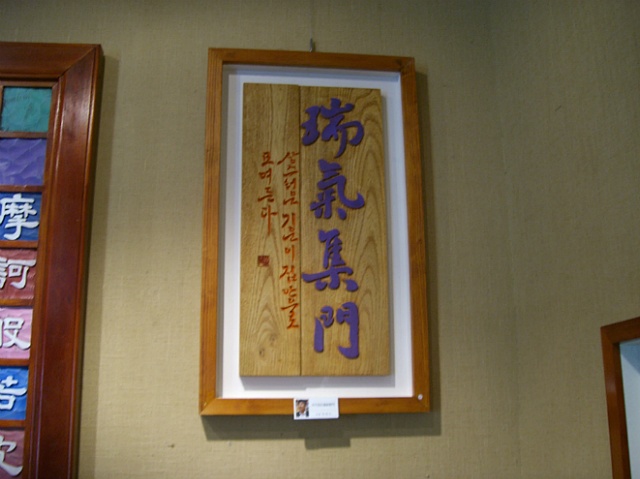 瑞氣集門
상스러운 기운이 집안으로
모여든다
摩
訶
般
若